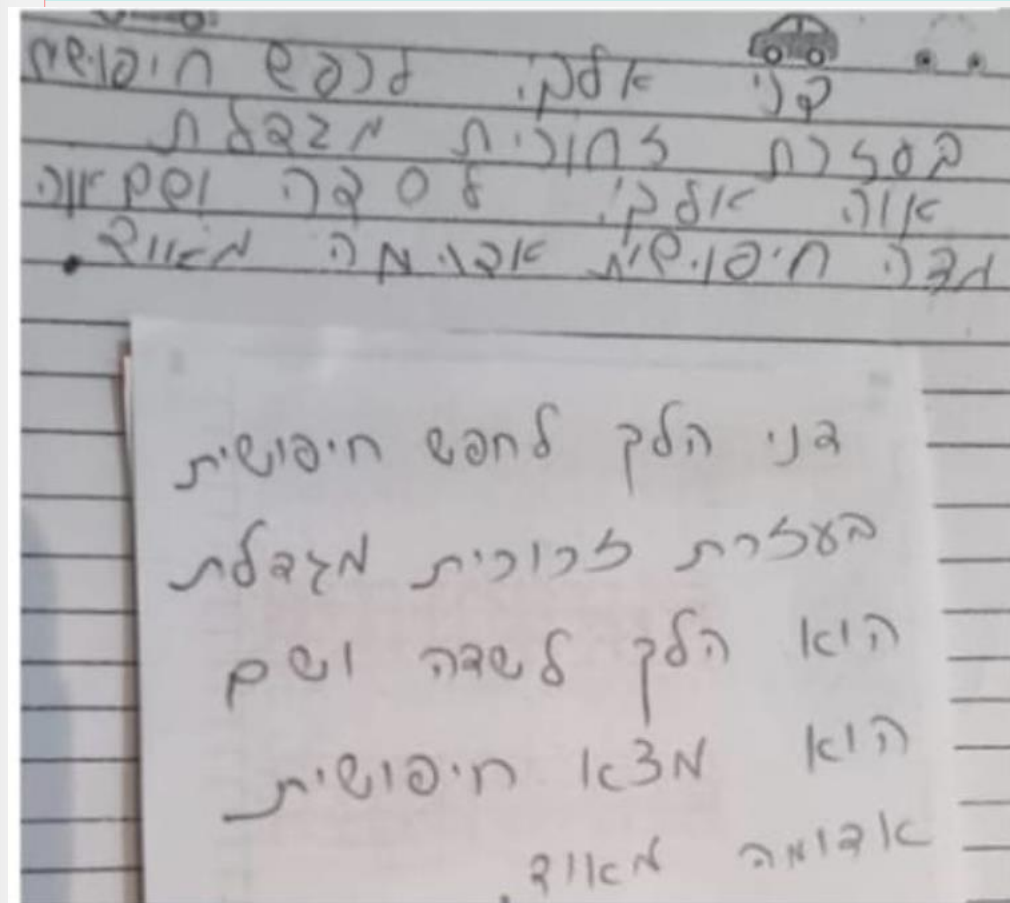 דני אלכ לרפש חיפושית
בסזרת זחורית מגבלת
אוה אלכ לסדה ושם אוה
מצה חיפושית אדומה מאווד.
דני הלך לחפש חיפושית
בעזרת זכוכית מגדלת
הוא הלך לשדה ושם
הוא מצא חיפושית
אדומה מאוד.